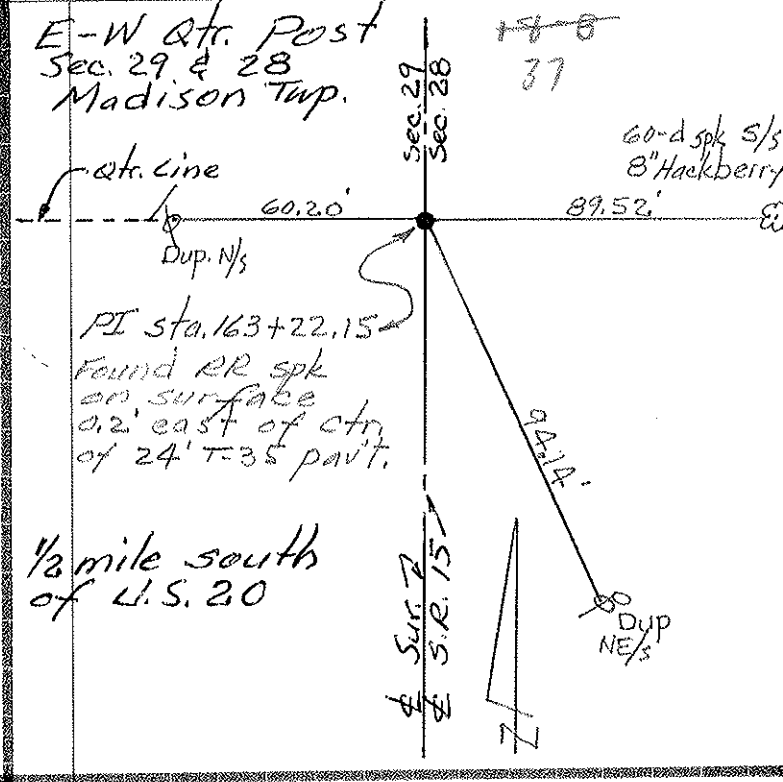 E-W Qtr. Post
Sec. 29 & 28
Madison Twp.
37
Sec. 29
Sec. 28
60-d spk S/s
8" Hackberry
Qtr. Line
60.20'
89.52'
Dup. N/s
PI sta. 163+22.15
Found RR spk
on surface
0.2' east of ctr.
of 24' T-35 pav't.
94.14'
1/2 mile south
of U.S. 20
℄ Sur. 7
℄ S.R. 15
Dup
NE/s